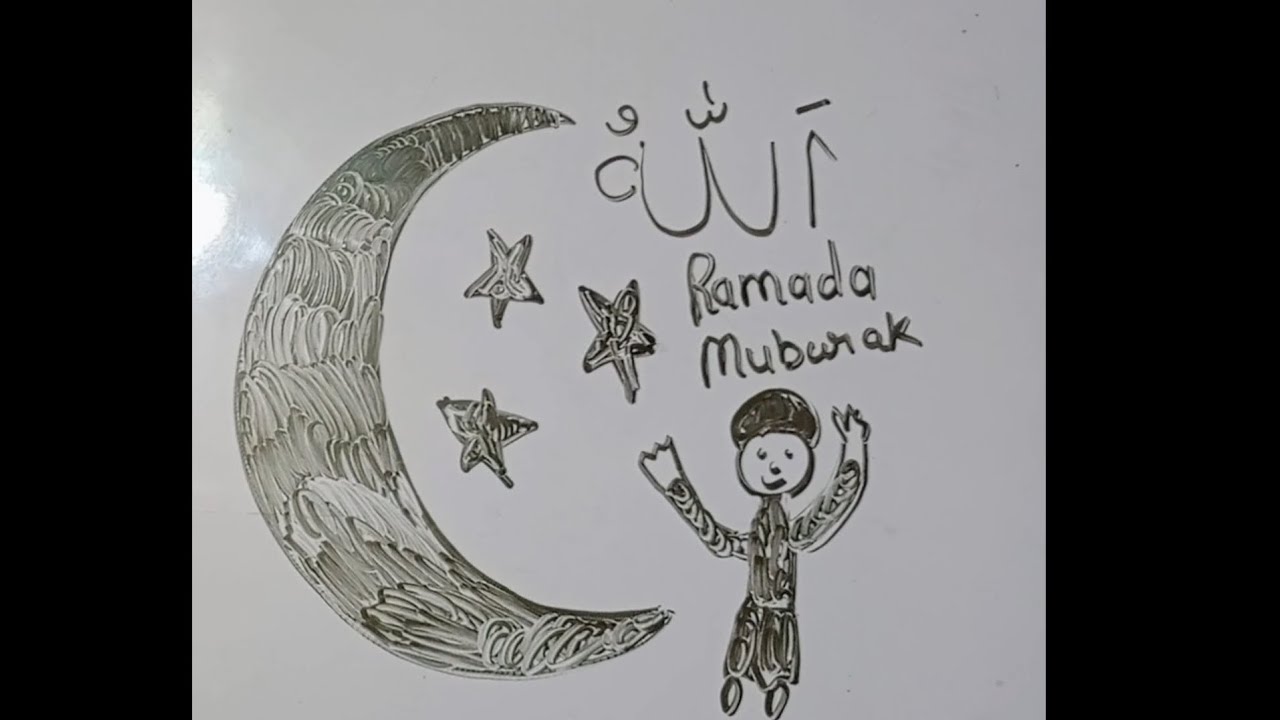 اَللّٰهُ
Ramada
Muburak